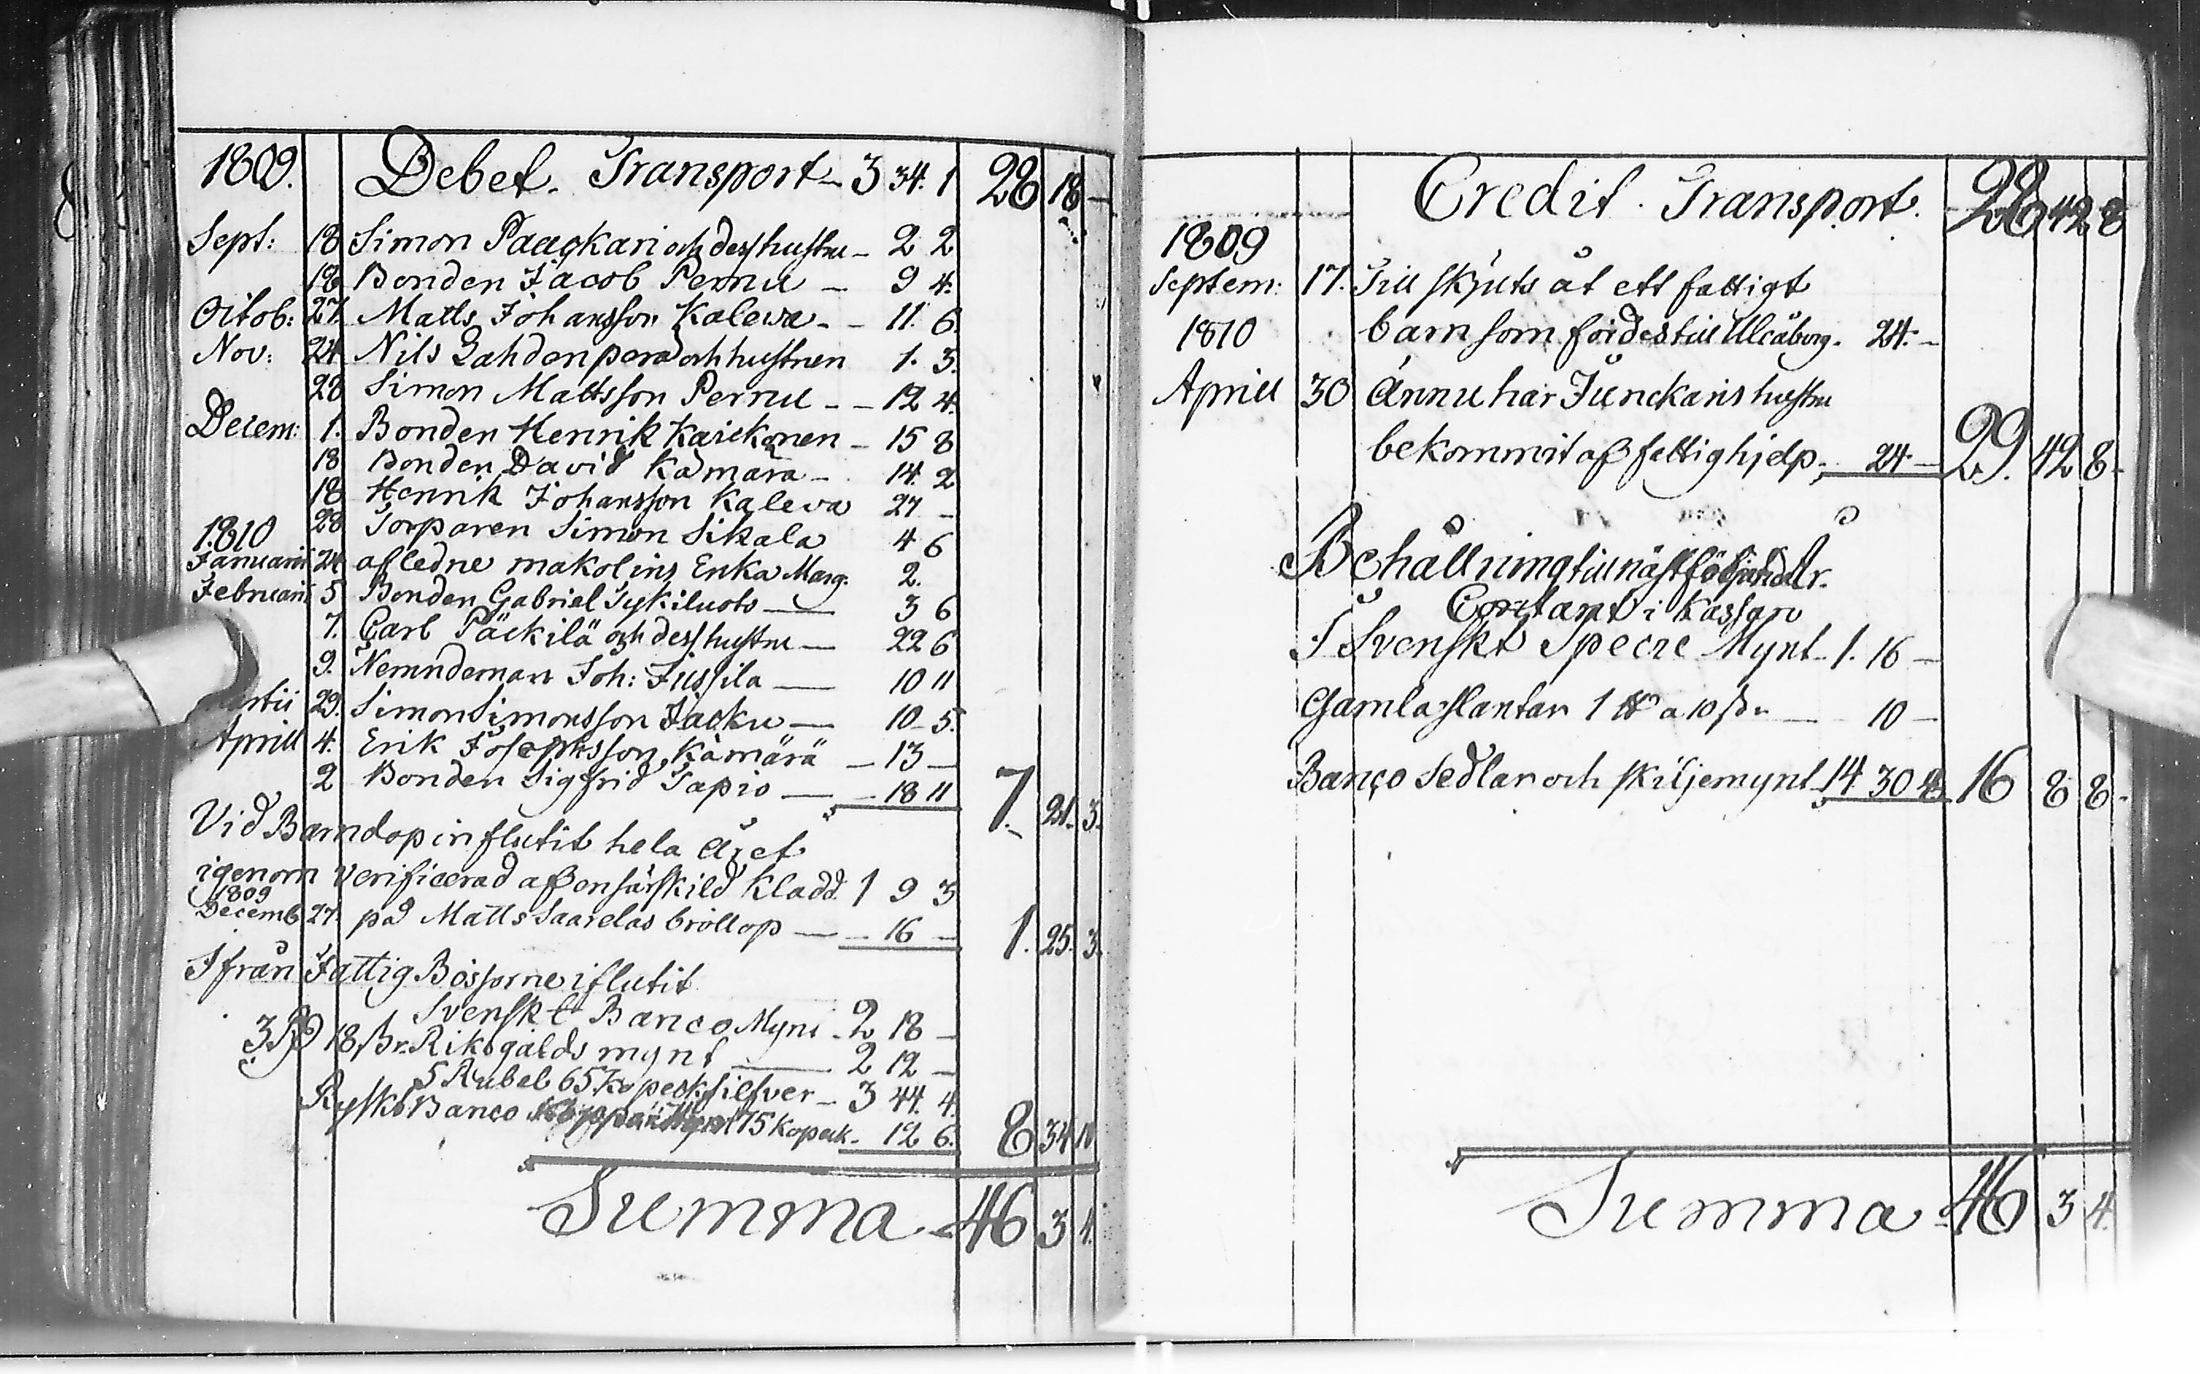 1809. Debet. Transport 3 34. 1 28 18 —
Sept: 18 Simon Paaokari och dess hustru — 2 2
18 Bonden Jacob Pernu — 9 4.
Octob: 27. Matts Johansson Kaleva — 11. 6.
Nov: 24 Nils Lahdenperä och hustrun 1. 3.
28 Simon Mattsson Pernu — 12 4.
Decem: 1. Bonden Henrik Karckonen — 15 8
18 Bonden David Kämärä — 14. 2
18 Henrik Johansson Kaleva 27 —
28 Torparen Simon Sikala 4 6
1810
Januarii 24 afledne makolins Enka Marg. 2.
Februarii 5 Bonden Gabriel Tykiluoto — 3 6
7. Carl Päckilä och dess hustru — 22 6
9. Nemndeman Joh: Jussila — 10 11
29. Simon Simonsson Jacku — 10 5.
Aprill 4. Erik Josephsson Kämärä — 13 —
2 Bonden Sigfrid Tapio — 18 11 7. 21. 3.
Vid Barndop influtit hela året
igenom verificerad af en särskild kladd. 1 9 3
1809
Decemb. 27. på Matts Saarelas bröllop — 16 — 1. 25. 3.
Ifrån Fattig Bössorne iflutit
Svenskt Banco Mynt 2 18 —
3 Rd 18 s. Br. Riksgälds mynt — 2 12 —
5 Rubel 65 Kopeck silfver — 3 44. 4.
Ryskt Banco 75 Kopeck. 12 6. 8 34 10
Summa 46 3 4.
Credit. Transport. 28 42 8
1809
Septem: 17. Till skjuts åt ett fattigt
1810 barn som fördes till Uleåborg. 24. —
Aprill 30 Ännu har Junckaris hustru
bekommit af fattighjelp, 24 — 29. 42 8 —
Behållning till nästföljande år.
Contant i Kassan
I Svenskt Specie Mynt 1. 16 —
Gamla slantar 1 lb a 10 s. — 10 —
Banco Sedlar och skiljemynt 14 30 8 16 8 8 —
Summa 46 3 4.